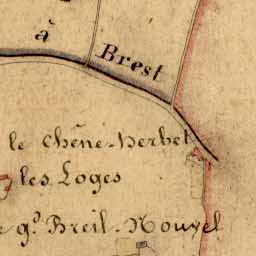 à Brest
le chêne-herbet
les Loges
e gd. Breil-Nouvel